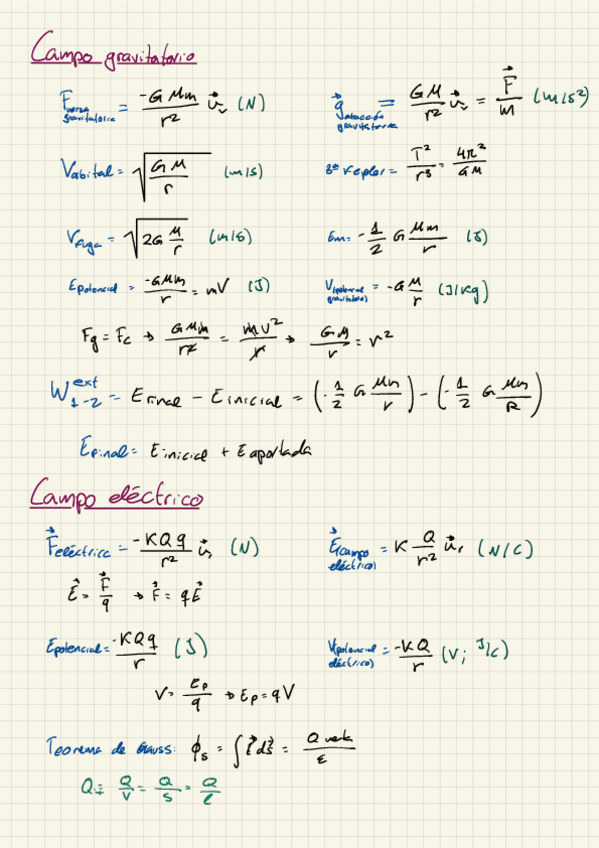 Campo gravitatorio
Fuerza gravitatoria = -G Mm / r² u⃗r (N)
g⃗ atracción gravitatoria = GM / r² u⃗r = F⃗ / m (m/s²)
Vorbital = √(GM / r) (m/s)
3ª Kepler = T² / r³ = 4π² / GM
Vfuga = √(2G M / r) (m/s)
Em = - 1/2 G Mm / r (J)
Epotencial = -GMm / r = mV (J)
V(potencial gravitatorio) = -G M / r (J/kg)
Fg = Fc → GMm / r² = mv² / r → GM / r = v²
W ext 1-2 = Efinal - Einicial = (- 1/2 G Mm / r) - (- 1/2 G Mm / R)
Efinal = Einicial + Eaportada
Campo eléctrico
F⃗eléctrica = -KQq / r² u⃗r (N)
E⃗(campo eléctrico) = K Q / r² u⃗r (N/C)
E⃗ = F⃗ / q → F⃗ = qE⃗
Epotencial = -KQq / r (J)
V(potencial eléctrico) = -KQ / r (V; J/C)
V = Ep / q → Ep = qV
Teorema de Gauss: ϕs = ∫ E⃗ ds⃗ = Q / ε
Q = Q / V = Q / S = Q / l